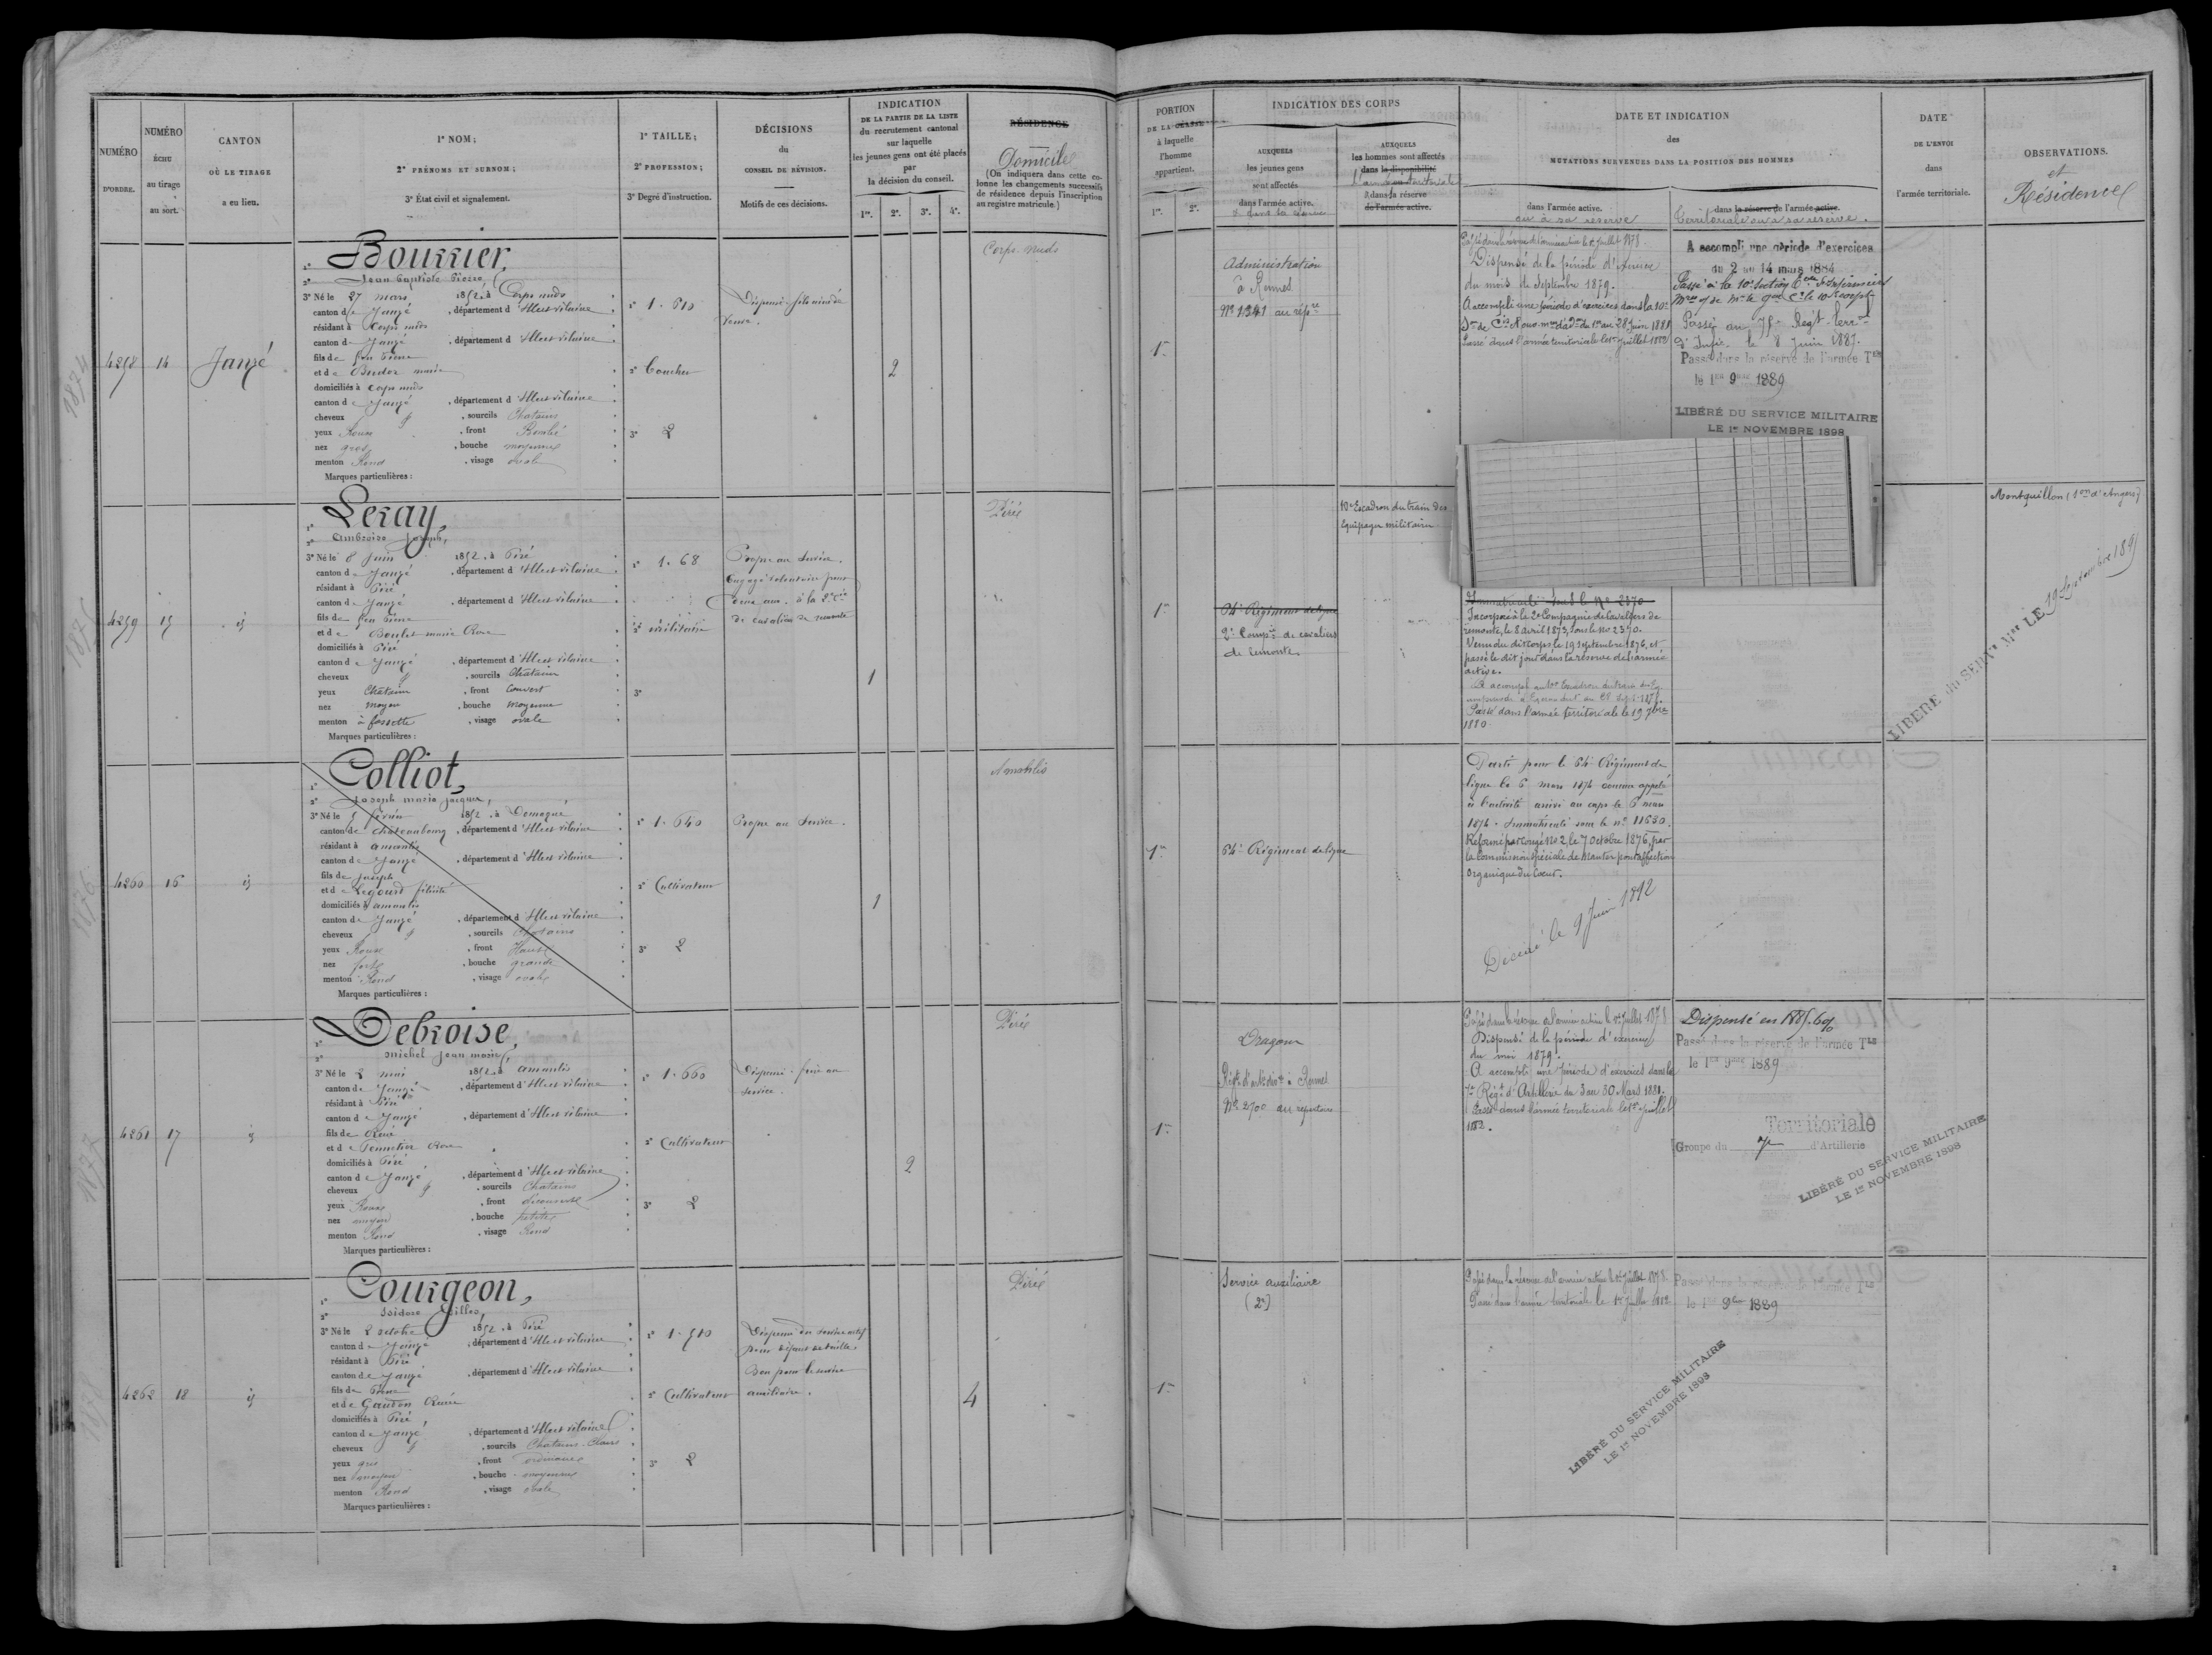 NUMÉRO
D'ORDRE.
NUMÉRO
ÉCHU
au tirage
au sort.
CANTON
OÙ LE TIRAGE
a eu lieu.
1º NOM;
2º PRÉNOMS ET SURNOM;
3º État civil et signalement.
1º TAILLE;
2º PROFESSION;
3º Degré d'instruction.
DÉCISIONS
du
CONSEIL DE RÉVISION.
Motifs de ces décisions.
INDICATION
DE LA PARTIE DE LA LISTE
du recrutement cantonal
sur laquelle
les jeunes gens ont été placés
par
la décision du conseil.
1re. 2e. 3e. 4e.
RÉSIDENCE
Domicile
(On indiquera dans cette co-
lonne les changements successifs
de résidence depuis l'inscription
au registre matricule.)
PORTION
DE LA CLASSE
à laquelle
l'homme
appartient.
1re. 2e.
INDICATION DES CORPS
AUXQUELS
les jeunes gens
sont affectés
dans l'armée active.
AUXQUELS
les hommes sont affectés
dans la disponibilité
dans la réserve
de l'armée active.
DATE ET INDICATION
des
MUTATIONS SURVENUES DANS LA POSITION DES HOMMES
dans l'armée active.
ou à sa réserve
dans la réserve de l'armée active.
Territoriale ou à sa réserve.
DATE
DE L'ENVOI
dans
l'armée territoriale.
OBSERVATIONS.
et
Résidence
4258 14 Janzé
1º Bourrier,
2º Jean Baptiste Pierre,
3º Né le 27 mars 1852, à Corps nuds
canton de Janzé, département d'Ille et vilaine
résidant à Corps nuds
canton de Janzé, département d'Ille et vilaine
fils de feu Pierre
et de Bodor marie
domiciliés à Corps nuds
canton de Janzé, département d'Ille et vilaine
cheveux, sourcils Chatains
yeux Roux, front Bombé
nez gros, bouche moyenne
menton Rond, visage ovale
Marques particulières :
1º 1.610
2º Boucher
3º 2
Dispensé fils aîné de
Veuve.
2
Corps nuds
1re
Administration
à Rennes
Nº 1341 au répre
Passé dans la réserve de l'armée active le 1er Juillet 1878.
Dispensé de la période d'exercice
du mois de Septembre 1879.
A accompli une période d'exercices dans la 10e
Son de Cis d'ouv. mres d'adon du 1er au 28 Juin 1881
Passé dans l'armée territoriale le 1er Juillet 1882
A accompli une période d'exercices
du 2 au 14 mars 1884
Passé au 75e Régt Terral
d'Infie. le 8 Juin 1887.
Passé dans la réserve de l'armée Tle
le 1er 9bre 1889
LIBÉRÉ DU SERVICE MILITAIRE
LE 1er NOVEMBRE 1898
4259 15 id
1º Leray,
2º Ambroise Joseph,
3º Né le 8 Juin 1852, à Piré
canton de Janzé, département d'Ille et vilaine
résidant à Piré
canton de Janzé, département d'Ille et vilaine
fils de feu Pierre
et de Boulet marie Rose
domiciliés à Piré
canton de Janzé, département d'Ille et vilaine
cheveux, sourcils Chatain
yeux Chatain, front Couvert
nez moyen, bouche moyenne
menton à fossette, visage ovale
Marques particulières :
1º 1.68
2º militaire
3º
Propre au service.
Engagé volontaire pour
cinq ans. à la 2e Cie
de cavaliers de remonte
1
Piré
1re
64e Régiment de ligne
2e Compie de cavaliers
de remonte.
10e Escadron du train des
Équipages militaires
Immatriculé sous le Nº 2370
Incorporé à la 2e Compagnie de Cavaliers de
remonte, le 8 avril 1873, sous le Nº 2370.
Venu du dit corps le 19 Septembre 1876, et
passé le dit jour dans la réserve de l'armée
active.
Passé dans l'armée territoriale le 19 7bre
1880.
LIBÉRÉ du SERVce Mre LE 19 Septembre 1891
Montguillon (Son d'Angers)
4260 16 id
1º Colliot,
2º Joseph marie Jacques,
3º Né le 5 février 1852, à Domagné
canton de Chateaubourg, département d'Ille et vilaine
résidant à Amanlis
canton de Janzé, département d'Ille et vilaine
fils de Joseph
et de Legourd félicité
domiciliés à Amanlis
canton de Janzé, département d'Ille et vilaine
cheveux, sourcils Chatains
yeux Roux, front Haut
nez fort, bouche grande
menton Rond, visage ovale
Marques particulières :
1º 1.640
2º Cultivateur
3º 2
Propre au service.
1
Amanlis
1re
64e Régiment de ligne
Porté pour le 64e Régiment de
ligne le 6 mars 1874 comme appelé
à l'activité arrivé au corps le 6 mars
1874. Immatriculé sous le nº 11630.
Réformé par congé Nº 2, le 7 Octobre 1876, par
la Commission spéciale de Nantes pour affection
organique du Coeur.
Décédé le 9 Juin 1892
4261 17 id
1º Debroise,
2º Michel Jean marie,
3º Né le 2 mai 1852, à Amanlis
canton de Janzé, département d'Ille et vilaine
résidant à Piré
canton de Janzé, département d'Ille et vilaine
fils de René
et de Pennetier Rose
domiciliés à Piré
canton de Janzé, département d'Ille et vilaine
cheveux, sourcils Chatains
yeux Roux, front découvert
nez moyen, bouche petite
menton Rond, visage Rond
Marques particulières :
1º 1.660
2º Cultivateur
3º 2
Dispensé frère au
service.
2
Piré
1re
Dragons
Régt d'artie à Rennes
Nº 2700 au répertoire
Passé dans la réserve de l'armée active le 1er Juillet 1878
Dispensé de la période d'exercices
du mois 1879.
A accompli une période d'exercices dans le
7e Régt d'Artillerie du 3 au 30 Mars 1881.
Passé dans l'armée territoriale le 1er Juillet
1882.
Dispensé en 1885. 6%
Passé dans la réserve de l'armée Tle
le 1er 9bre 1889
Territoriale
Groupe du 7e d'Artillerie
LIBÉRÉ DU SERVICE MILITAIRE
LE 1er NOVEMBRE 1898
4262 18 id
1º Courgeon,
2º Isidore Gilles,
3º Né le 2 octobre 1852, à Piré
canton de Janzé, département d'Ille et vilaine
résidant à Piré
canton de Janzé, département d'Ille et vilaine
fils de Pierre
et de Gaudon Renée
domiciliés à Piré
canton de Janzé, département d'Ille et vilaine
cheveux, sourcils Chatains Clairs
yeux gris, front ordinaire
nez moyen, bouche moyenne
menton Rond, visage ovale
Marques particulières :
1º 1.510
2º Cultivateur
3º 2
Dispensé du service actif
pour défaut de taille.
Bon pour le service
auxiliaire.
4
Piré
1re
Service auxiliaire
(2e)
Passé dans la réserve de l'armée active le 1er Juillet 1878.
Passé dans l'armée territoriale le 1er Juillet 1882
Passé dans la réserve de l'armée Tle
le 1er 9bre 1889
LIBÉRÉ DU SERVICE MILITAIRE
LE 1er NOVEMBRE 1898